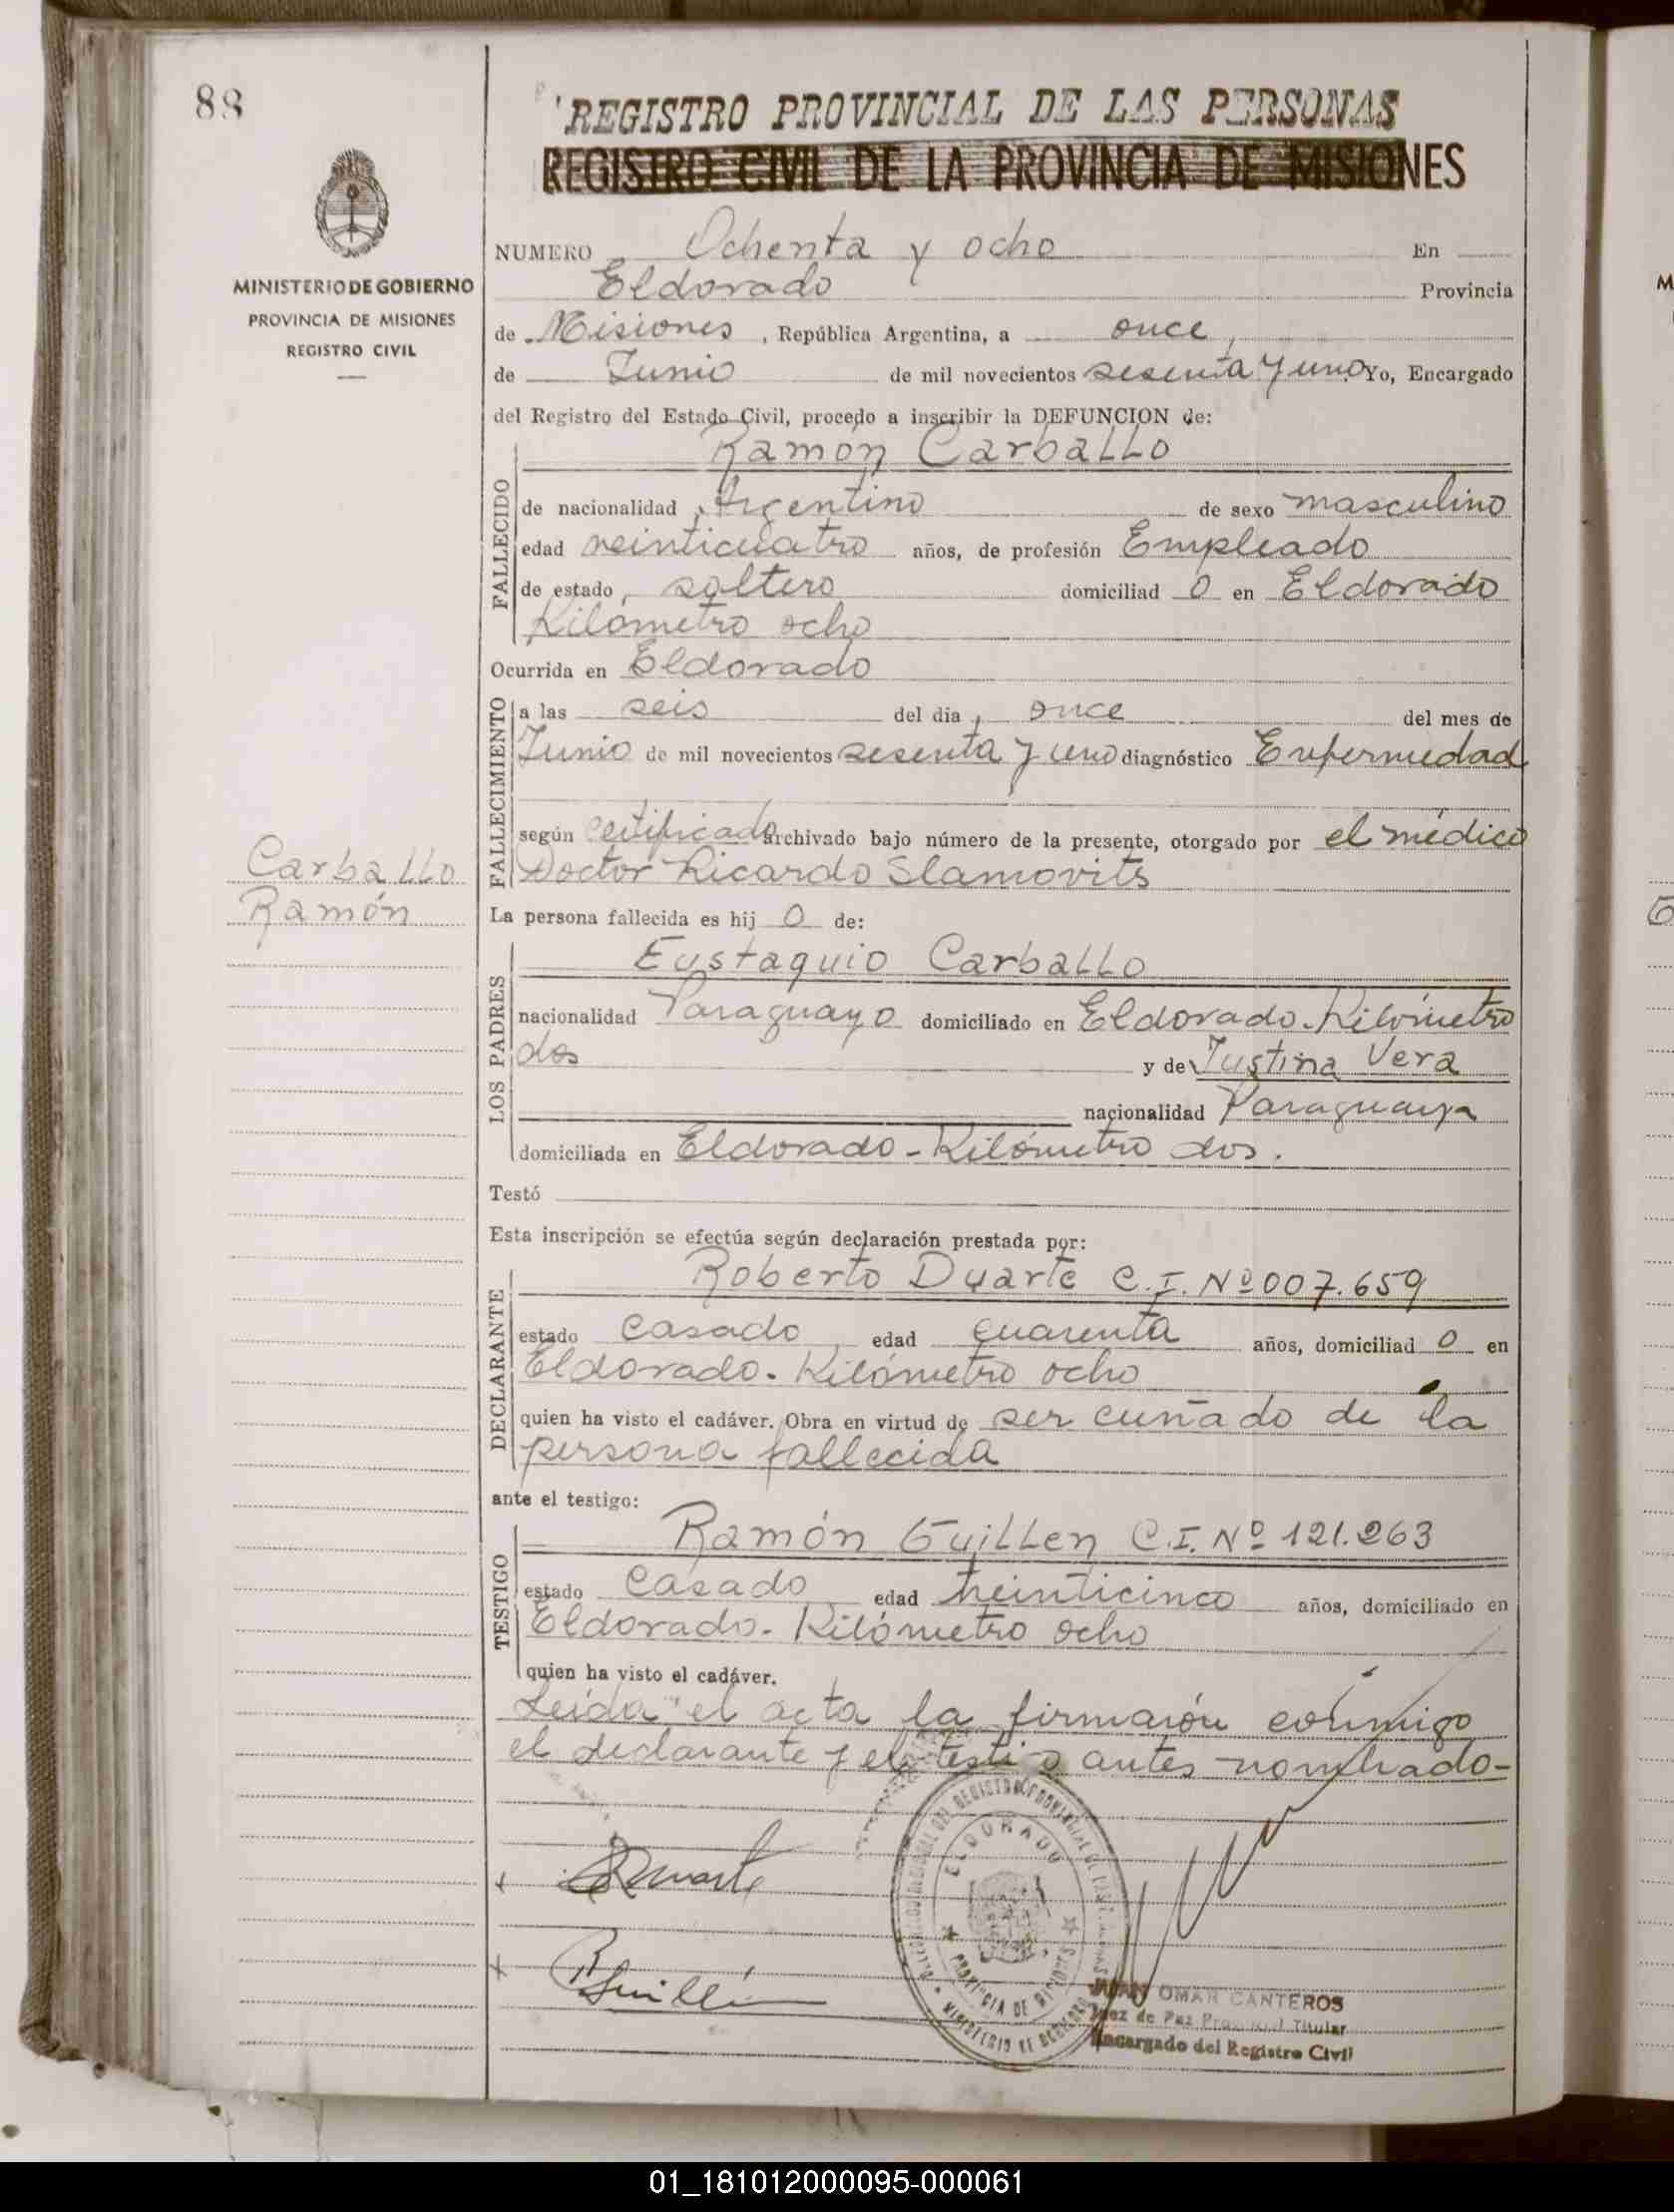 88
REGISTRO PROVINCIAL DE LAS PERSONAS
REGISTRO CIVIL DE LA PROVINCIA DE MISIONES
MINISTERIO DE GOBIERNO
PROVINCIA DE MISIONES
REGISTRO CIVIL
NUMERO Ochenta y ocho En
Eldorado Provincia
de Misiones, República Argentina, a once
de Junio de mil novecientos sesenta y uno Yo, Encargado
del Registro del Estado Civil, procedo a inscribir la DEFUNCION de:
FALLECIDO
Ramón Carballo
de nacionalidad Argentino de sexo masculino
edad veinticuatro años, de profesión Empleado
de estado soltero domiciliad o en Eldorado
Kilómetro ocho
Ocurrida en Eldorado
FALLECIMIENTO
a las seis del dia once del mes de
Junio de mil novecientos sesenta y uno diagnóstico Enfermedad
según certificado archivado bajo número de la presente, otorgado por el médico
Doctor Ricardo Slamovits
Carballo
Ramón
La persona fallecida es hij o de:
LOS PADRES
Eustaquio Carballo
nacionalidad Paraguayo domiciliado en Eldorado. Kilómetro
dos y de Justina Vera
nacionalidad Paraguaya
domiciliada en Eldorado - Kilómetro dos.
Testó
Esta inscripción se efectúa según declaración prestada por:
DECLARANTE
Roberto Duarte C.I. Nº 007.659
estado casado edad cuarenta años, domiciliad o en
Eldorado. Kilómetro ocho
quien ha visto el cadáver. Obra en virtud de ser cuñado de la
persona fallecida
ante el testigo:
TESTIGO
Ramón Guillen C.I. Nº 121.263
estado casado edad veinticinco años, domiciliado en
Eldorado. Kilómetro ocho
quien ha visto el cadáver.
Leída el acta la firmarón conmigo
el declarante y el testigo antes nombrado-
Duarte
R Guillén
ELDORADO
PROVINCIA DE MISIONES
JUAN OMAR CANTEROS
Juez de Paz Provincial Titular
Encargado del Registro Civil
01_181012000095-000061